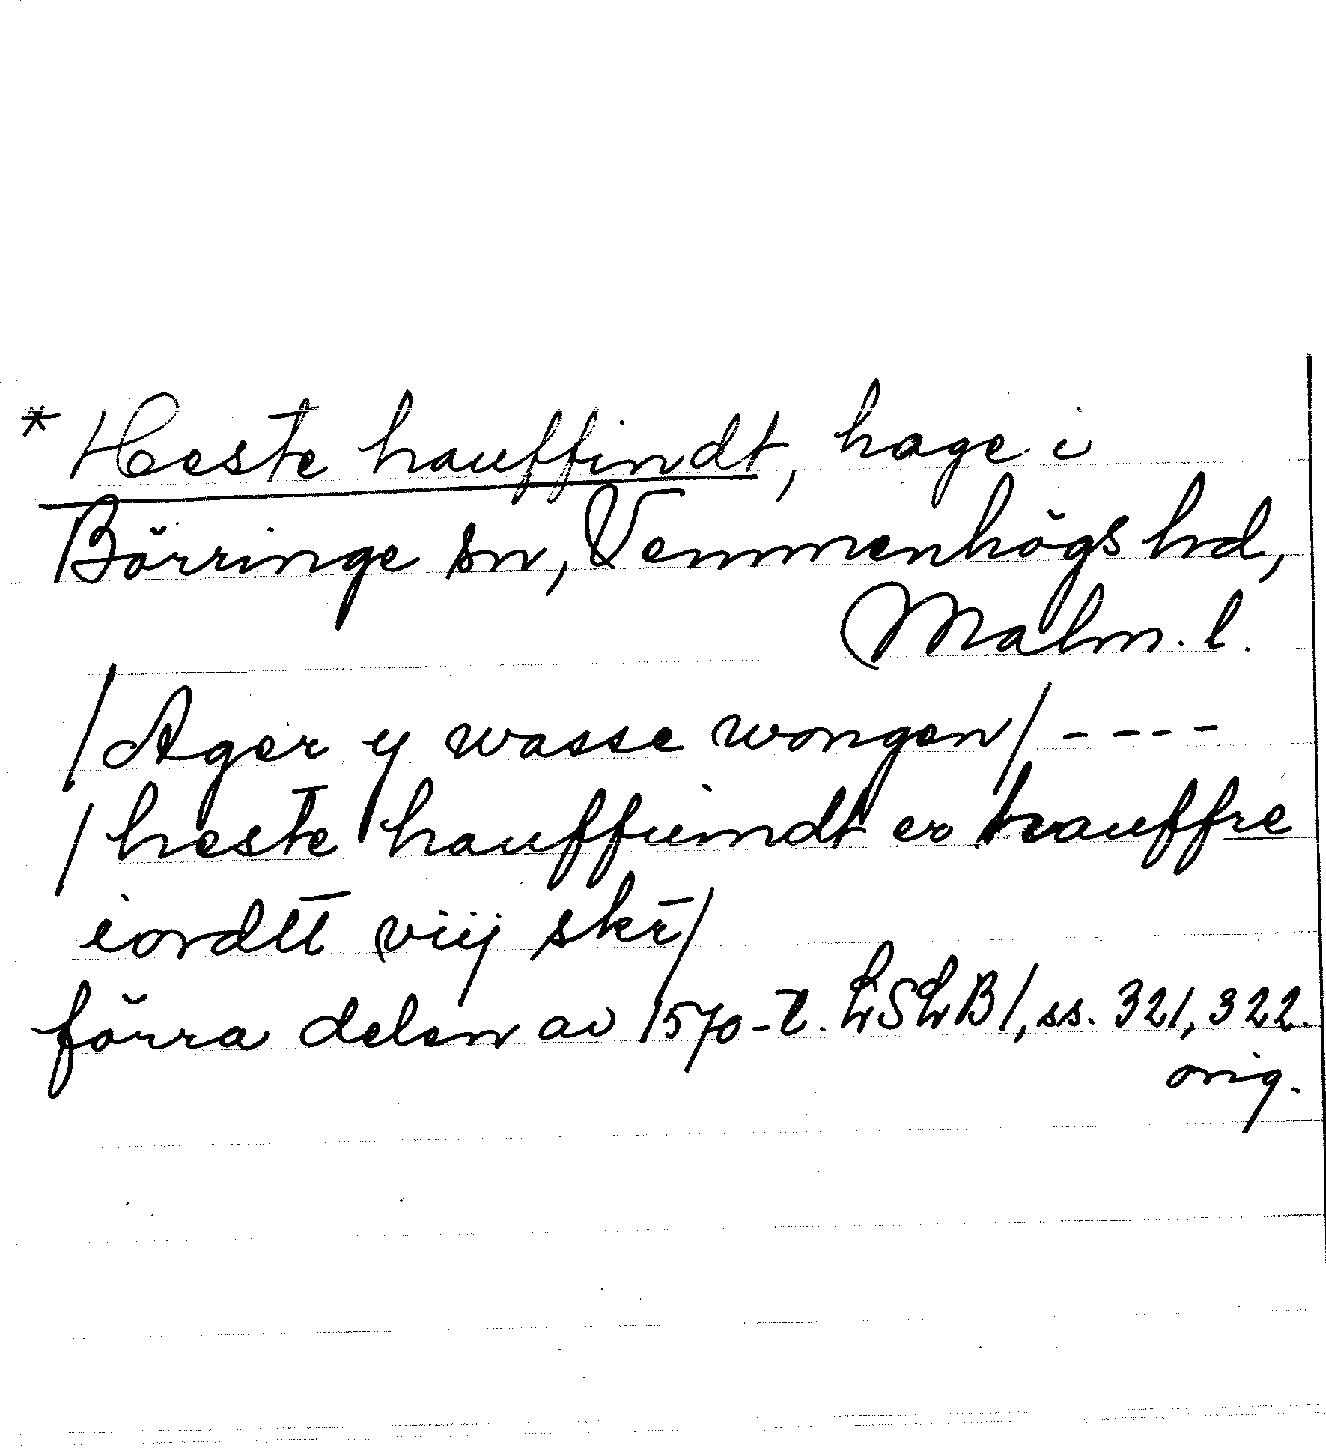 * Heste hauffindt, hage i
Börringe sn, Vemmenhögs hd,
Malm. l.
/Ager y wasse wongen/ ----
/heste hauffuindt er hauffre
iordtt viij skr̄/
förra delen av 1570-t. LSLB1, ss. 321, 322.
orig.